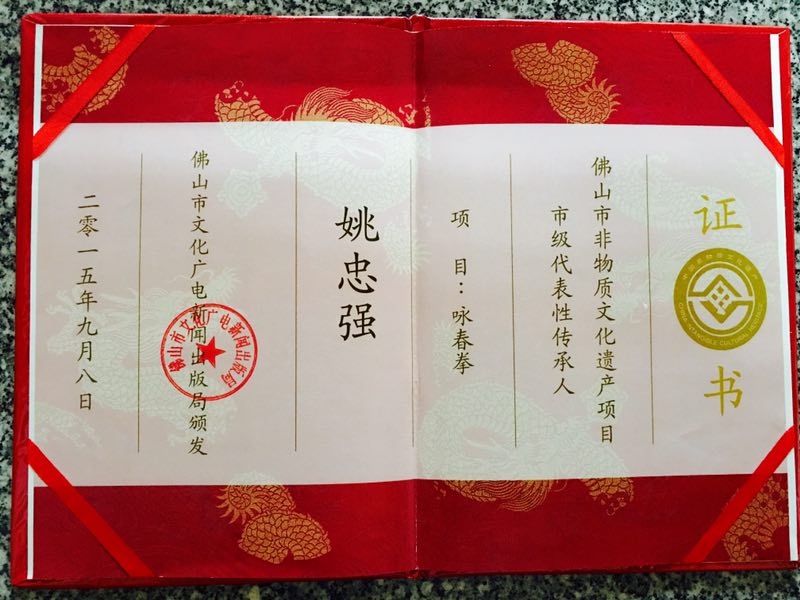 证书
中国非物质文化遗产
CHINA INTANGIBLE CULTURAL HERITAGE
佛山市非物质文化遗产项目
市级代表性传承人
项目：咏春拳
姚忠强
佛山市文化广电新闻出版局颁发
佛山市文化广电新闻出版局
二零一五年九月八日